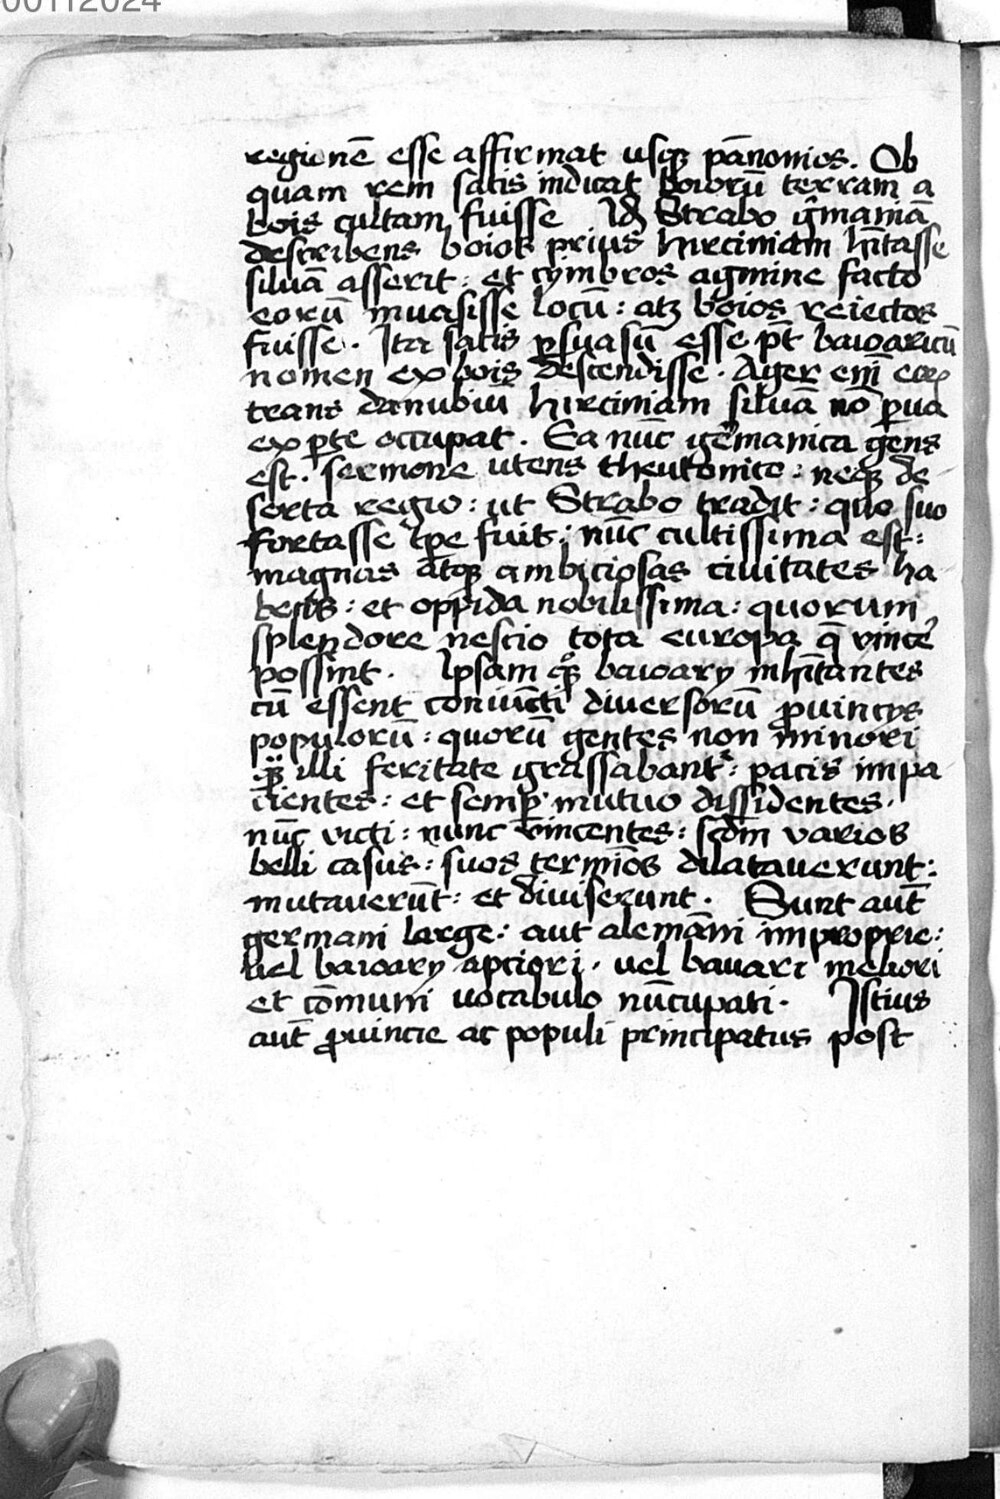 00112024
regionē esse affirmat usqꝫ pānonios. Ob
quam rem satis indicat boiorū terram a
bois cultam fuisse Idē Strabo ḡmaniā
describens boios prius hirciniam hītasse
siluā asserit: et cymbros agmine facto
eorū inuasisse locū: atqꝫ boios reiectos
fuisse. Ita satis ꝑsuasū esse pt̄ baioaricū
nomen ex bois descendisse. Ager eni͞ eoꝝ
trans danubiū hirciniam siluā nō ꝑua
ex ꝑte occupat. Ea nūc germanica gens
est. sermone utens theutonico: neqꝫ de
serta regio: ut Strabo tradit: quo suo
fortasse tp̄e fuit: nūc cultissima est:
magnas atqꝫ ambiciosas ciuitates ha
bens: et oppida nobilissima: quorum
splendore nescio tota europa q̄ vince͛
possint. Ipsam qͦqꝫ baioary inhītantes
cū essent conuicti diuersorū ꝓuincys
populorū: quorū gentes non minori
qꝫ̄ illi feritate grassabant᷑: pacis impa
cientes: et semꝑ mutuo dissidentes.
nūc victi: nunc vincentes: scd̄m varios
belli casus: suos termīos dilatauerunt:
mutauerūt: et diuiserunt. Sunt aut̄
germani large: aut alemāni improprie:
uel baioary apciori. uel bauari meliori
et cōmuni uocabulo nūcupati. Istius
aut̄ ꝓuincie ac populi principatus post